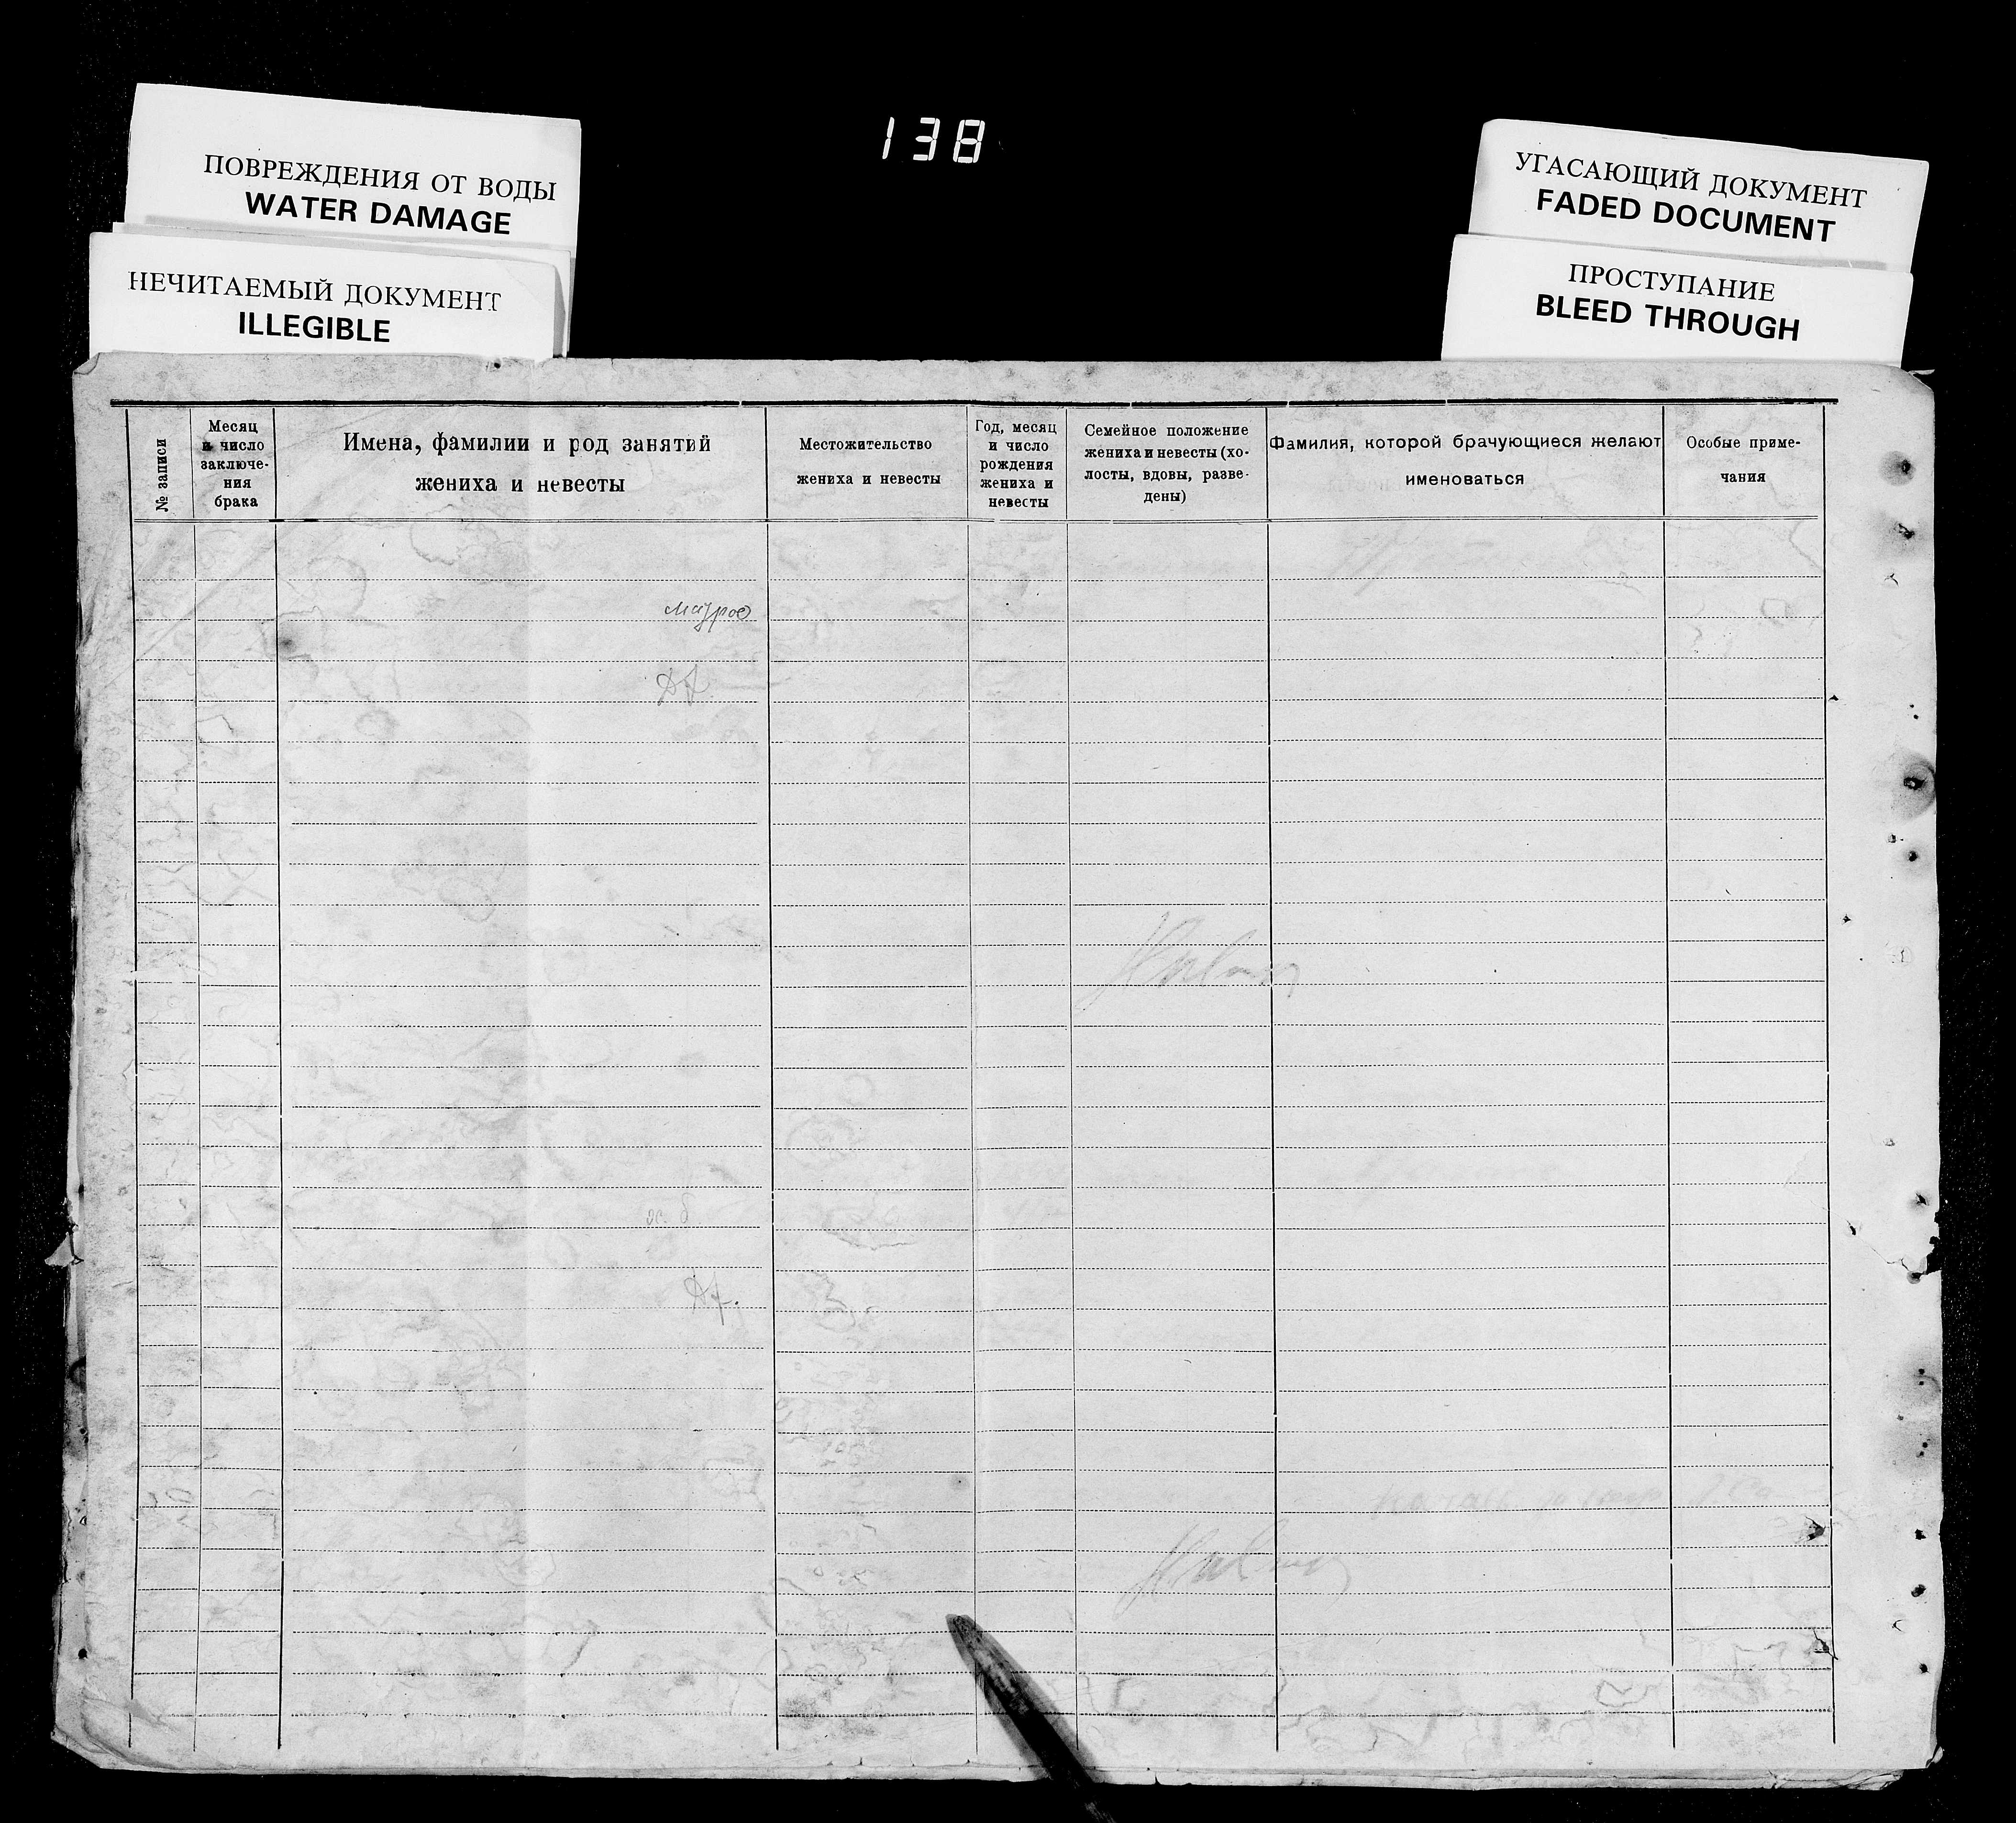 138
ПОВРЕЖДЕНИЯ ОТ ВОДЫ
WATER DAMAGE
НЕЧИТАЕМЫЙ ДОКУМЕНТ
ILLEGIBLE
УГАСАЮЩИЙ ДОКУМЕНТ
FADED DOCUMENT
ПРОСТУПАНИЕ
BLEED THROUGH
№ записи
Месяц
и число
заключе-
ния
брака
Имена, фамилии и род занятий
жениха и невесты
Местожительство
жениха и невесты
Год, месяц
и число
рождения
жениха и
невесты
Семейное положение
жениха и невесты (хо-
лосты, вдовы, разве-
дены)
Фамилия, которой брачующиеся желают
именоваться
Особые приме-
чания